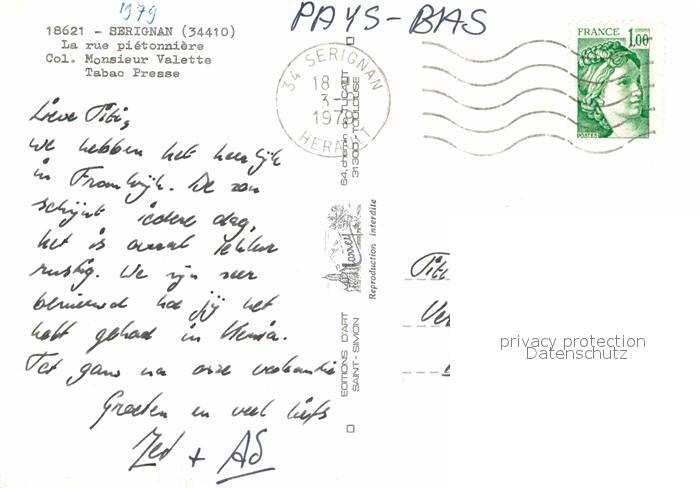 1979
18621 - SERIGNAN (34410)
La rue piétonnière
Col. Monsieur Valette
Tabac Presse
PAYS-BAS
34 SERIGNAN
18
3-
197
HERAULT
FRANCE
1,00
POSTES
Lieve Titi,
We hebben het heerlijk
in Frankrijk. De zon
schijnt iedere dag,
het is overal lekker
rustig. We zijn zeer
benieuwd hoe jij het
hebt gehad in
Tot gauw na onze vakantie
Groeten en veel liefs
+ Ad
64, chemin de
31300 - TOULOUSE
Reproduction interdite
EDITIONS D'ART
SAINT-SIMON
Titi
Ver
privacy protection
Datenschutz